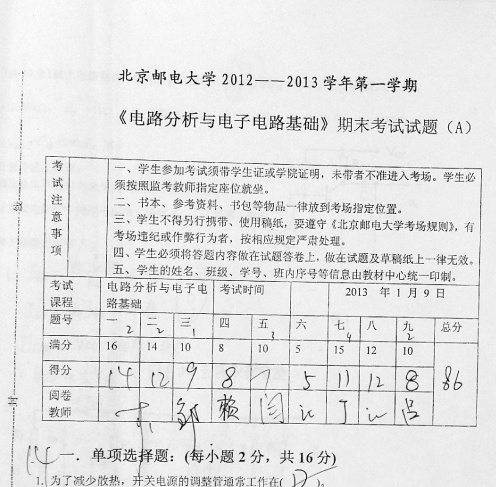 北京邮电大学 2012——2013 学年第一学期
《电路分析与电子电路基础》期末考试试题（A）
考试注意事项
一、学生参加考试须带学生证或学院证明，未带者不准进入考场。学生必
须按照监考教师指定座位就坐。
二、书本、参考资料、书包等物品一律放到考场指定位置。
三、学生不得另行携带、使用稿纸，要遵守《北京邮电大学考场规则》，有
考场违纪或作弊行为者，按相应规定严肃处理。
四、学生必须将答题内容做在试题答卷上，做在试题及草稿纸上一律无效。
五、学生的姓名、班级、学号、班内序号等信息由教材中心统一印制。
考试课程 电路分析与电子电路基础 考试时间 2013 年 1 月 9 日
题号 一 2 二 2 三 1 四 五 3 六 七 4 八 九 2 总分
满分 16 14 10 8 10 5 15 12 10
得分 14 12 9 8 7 5 11 12 8 86
阅卷教师 郭 赖 闫 丁 吕
14 一．单项选择题：(每小题 2 分，共 16 分)
1. 为了减少散热，开关电源的调整管通常工作在(